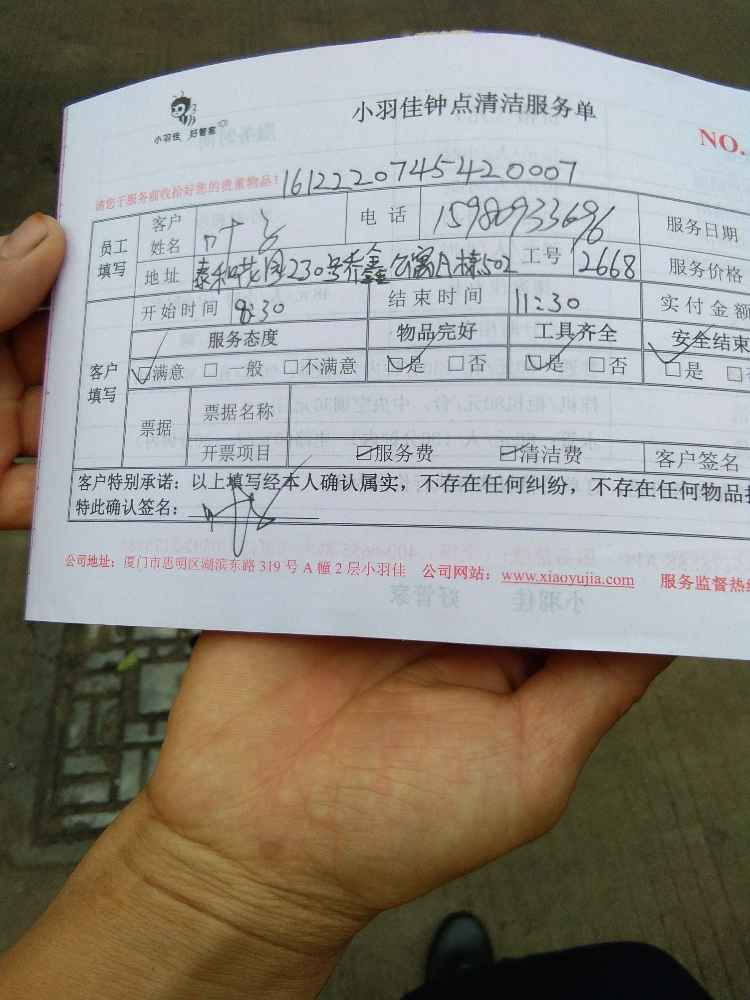 小羽佳钟点清洁服务单
小羽佳 好管家
NO.
请您于服务前收拾好您的贵重物品! 1612220745420007
员工填写 客户姓名 叶 电话 15980933696 服务日期
地址 泰和花园230号乔鑫公寓A栋502 工号 12668 服务价格
客户填写 开始时间 8:30 结束时间 11:30 实付金额
服务态度 物品完好 工具齐全 安全结束
☑满意 □一般 □不满意 ☑是 □否 ☑是 □否 ☑是 □否
票据 票据名称
开票项目 ☑服务费 ☑清洁费 客户签名
客户特别承诺：以上填写经本人确认属实，不存在任何纠纷，不存在任何物品
特此确认签名：
公司地址：厦门市思明区湖滨东路 319 号 A 幢 2 层小羽佳 公司网站：www.xiaoyujia.com 服务监督热线